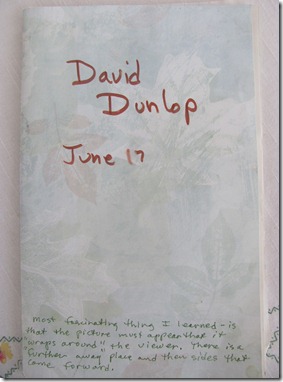 David
Dunlop
June 17
most fascinating thing I learned - is
that the picture must appear that it
"wraps around" the viewer. There is a
"further away" place and then sides that
come forward.